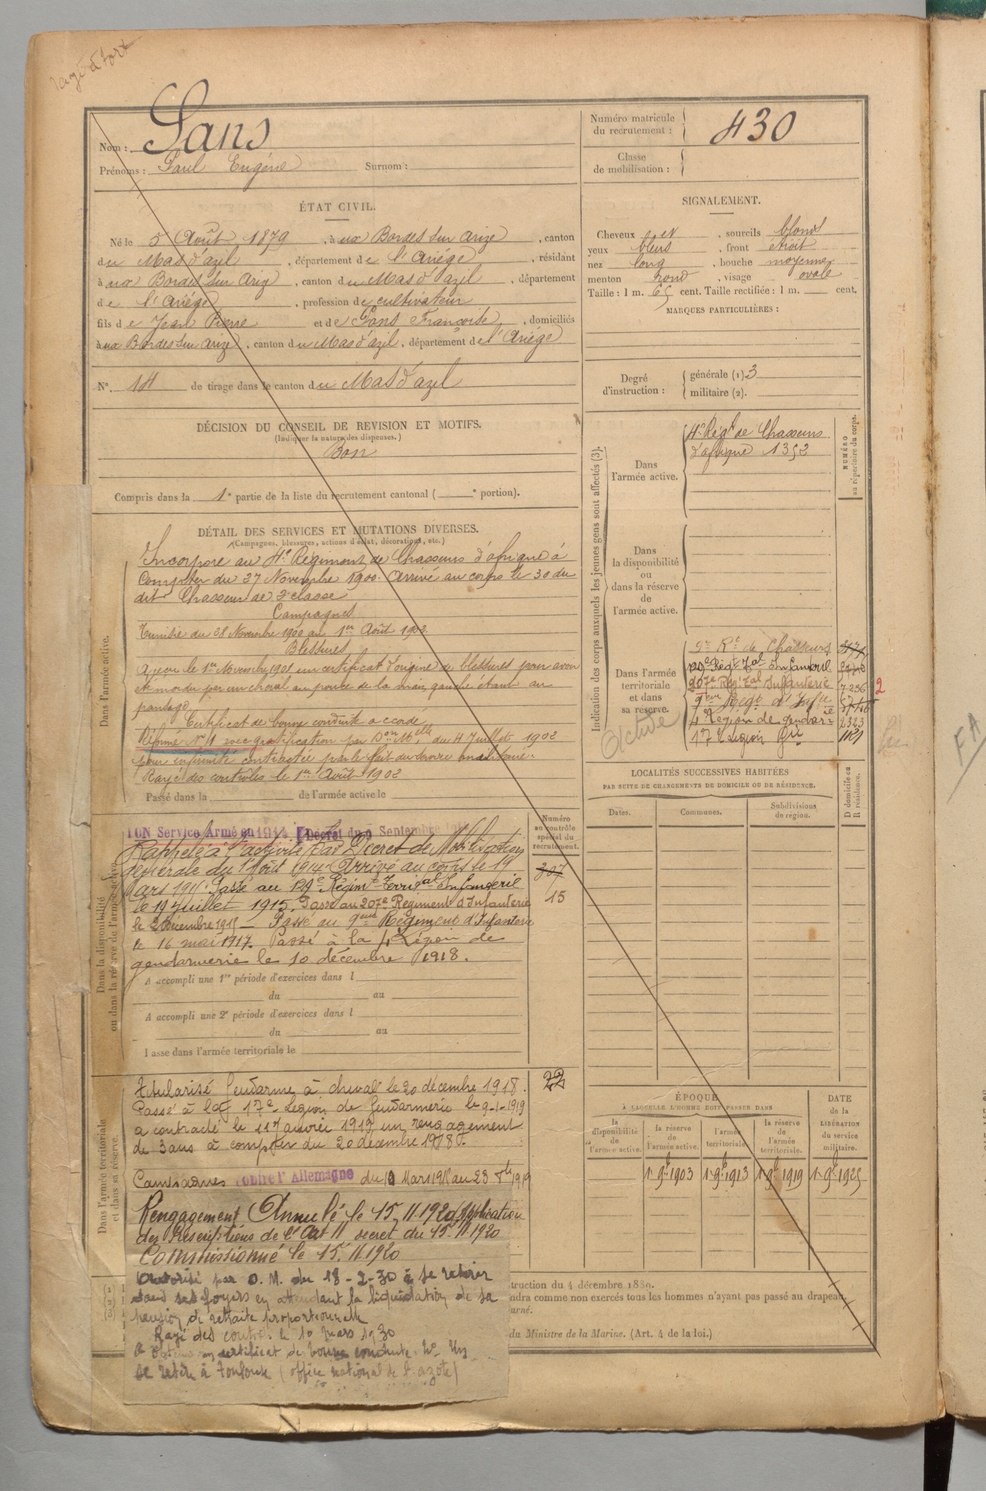 Nom : Sans
Prénoms : Paul Eugène Surnom :
ÉTAT CIVIL.
Né le 5 Août 1879, à aux Bordes sur Arize, canton
du Mas d'azil, département de l'Ariège, résidant
à aux Bordes sur Ariz, canton du Mas d'azil, département
de l'Ariège, profession de cultivateur
fils de Jean Pierre et de Sans Françoise, domiciliés
à aux Bordes sur Arize, canton du Mas d'azil, département de l'Ariège
N° 14 de tirage dans le canton du Mas d'azil
DÉCISION DU CONSEIL DE REVISION ET MOTIFS.
(Indiquer la nature des dispenses.)
Bon
Compris dans la 1e partie de la liste du recrutement cantonal ( e portion).
DÉTAIL DES SERVICES ET MUTATIONS DIVERSES.
(Campagnes, blessures, actions d'éclat, décorations, etc.)
Dans l'armée active.
Incorporé au 4e Régiment de Chasseurs d'afrique à
compter du 27 Novembre 1900. Arrivé au corps le 30 du
dit Chasseur de 2e classe
Campagnes
Tunisie du 28 Novembre 1900 au 1er Août 1902
Blessures
A reçu le 1er Novembre 1901 un certificat d'origine de blessures pour avoir
été mordu par un cheval au pouce de la main gauche étant au
pansage
Certificat de bonne conduite accordé
Réformé N° 1 avec gratification par Don Mlle du 4 Juillet 1902
pour infirmité contractée par le fait du service militaire.
Rayé des contrôles le 1er Août 1902
Passé dans la de l'armée active le
Dans la disponibilité ou dans la réserve de l'armée active
Service Armé en 1914 Décret du 9 Septembre
Rappelé à l'activité par Décret de Mobilisation
générale du 1er Août 1914 Arrivé au corps le 19
Mars 1915. Passé au 129e Régimt Territal Infanterie
le 19 juillet 1915. Passé au 207e Régiment d'Infanterie
le 2 Novembre 1915 — Passé au 9ème Régiment d'Infanterie
le 16 mai 1917. Passé à la 4e Légion de
gendarmerie le 10 décembre 1918.
A accompli une 1re période d'exercices dans l
du au
A accompli une 2e période d'exercices dans l
du au
Passé dans l'armée territoriale le
Numéro au contrôle spécial du recrutement.
307
15
22
Dans l'armée territoriale et dans sa réserve.
Titularisé Gendarme à cheval le 20 décembre 1918.
Passé à la 17e Légion de Gendarmerie le 9-1-1919
a contracté le 11 janvier 1919 un rengagement
de 3 ans à compter du 20 décembre 1918.
Campagnes contre l'Allemagne du 19 Mars 1915 au 23 8bre 1919
Rengagement Annulé le 15.11.1920 (Application
des Prescriptions de l'Art 11 décret du 15.11.1920
Commissionné le 15.11.1920
Autorisé par D.M. du 18-2-30 à se retirer
dans ses foyers en attendant la liquidation de sa
pension de retraite proportionnelle
Rayé des contrôles le 10 mars 1930
certificat de bonne conduite.
se retire à Toulouse (office national de l'azote)
Numéro matricule du recrutement : 430
Classe de mobilisation :
SIGNALEMENT.
Cheveux et, sourcils blonds
yeux bleus, front étroit
nez long, bouche moyenne
menton rond, visage ovale
Taille : 1 m. 65 cent. Taille rectifiée : 1 m. cent.
MARQUES PARTICULIÈRES :
Degré d'instruction : générale (1) 3
militaire (2).
Indication des corps auxquels les jeunes gens sont affectés (3).
NUMÉRO au répertoire du corps.
Dans l'armée active.
4e Régt de Chasseurs
d'afrique 1352
Dans la disponibilité ou dans la réserve de l'armée active.
Dans l'armée territoriale et dans sa réserve.
Rt de Chasseurs
129e Régt Tal Infanterie
207e Regt Infanterie 7236
9ème Régt d'Inftie
4e Légion de gendarie 2323
17e Légion Gie
Active
2
LOCALITÉS SUCCESSIVES HABITÉES
PAR SUITE DE CHANGEMENTS DE DOMICILE OU DE RÉSIDENCE.
Dates. Communes. Subdivisions de région. D domicile ou R résidence.
ÉPOQUE
À LAQUELLE L'HOMME DOIT PASSER DANS
la disponibilité de l'armée active. la réserve de l'armée active. l'armée territoriale. la réserve de l'armée territoriale.
DATE de la LIBÉRATION du service militaire.
1er 9bre 1903 1er 9bre 1913 1er 9bre 1919 1er 9bre 1925
struction du 4 décembre 1889.
ndra comme non exercés tous les hommes n'ayant pas passé au drapeau
arné.
du Ministre de la Marine. (Art. 4 de la loi.)